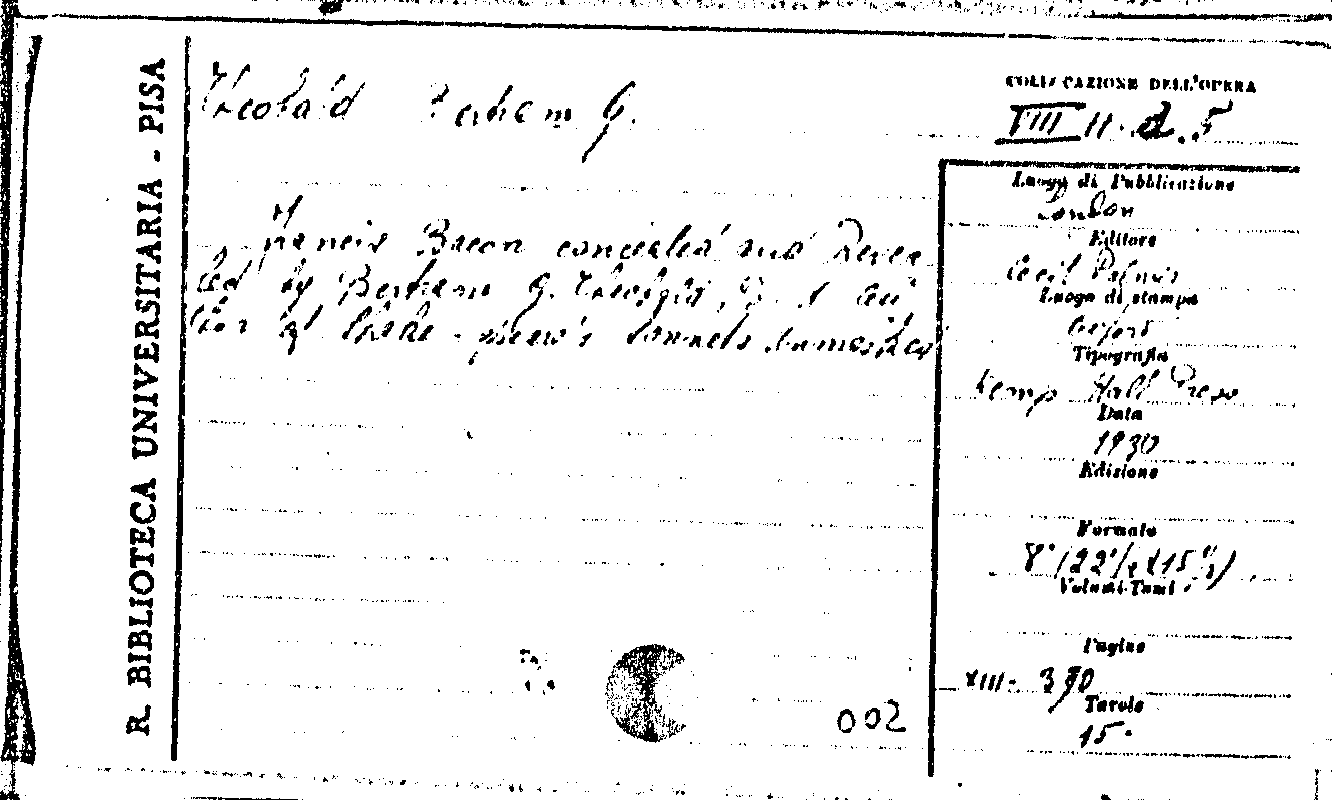 R. BIBLIOTECA UNIVERSITARIA - PISA
Theobald Bertram G.
Francis Bacon concealed and Revea
led by Bertram G. Theobald, B. A. Au
thor of Shake-speare's Sonnets Unmasked
COLLOCAZIONE DELL'OPERA
VIII H. d. 5
Luogo di Pubblicazione
London
Editore
Cecil Palmer
Luogo di stampa
Oxford
Tipografia
Kemp Hall Press
Data
1930
Edizione
Formato
8° (22 1/2 x 15 1/2)
Volumi-Tomi
Pagine
XIII - 390
Tavole
15.
002